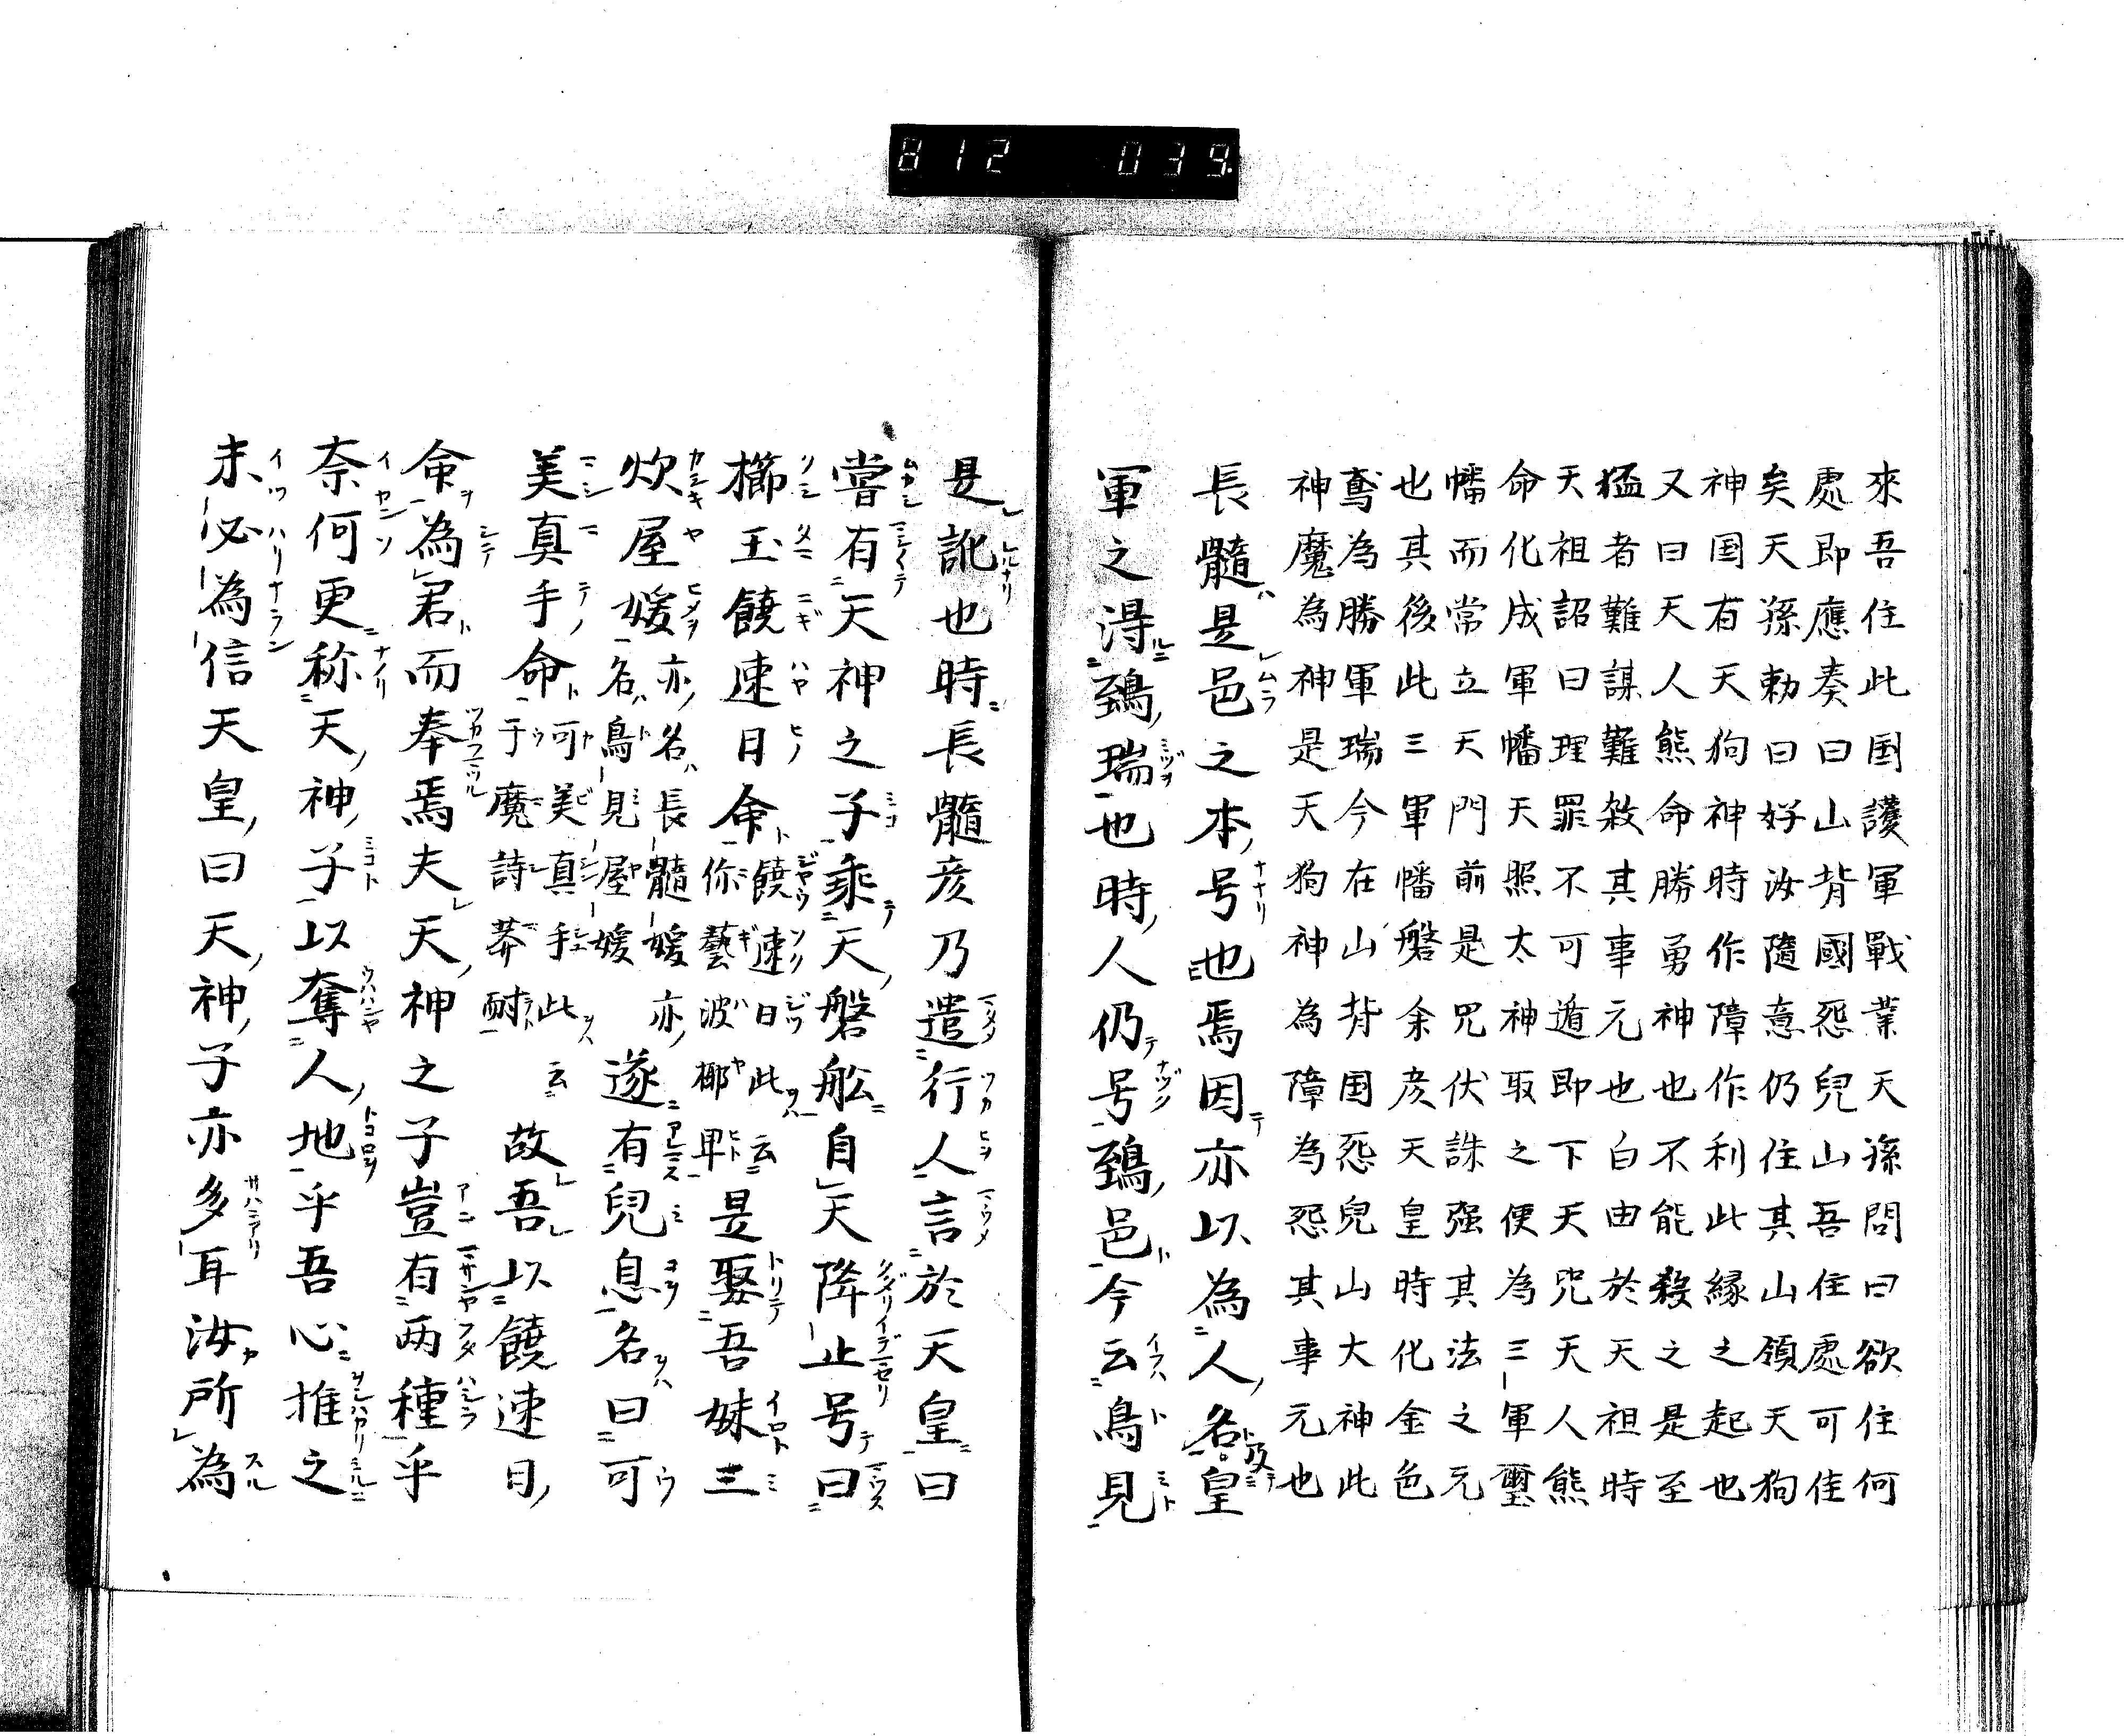 812 039
來吾住此国護軍戰業天孫問曰欲住何
處即應奏曰山背國怨兒山吾住處可住
矣天孫勅曰好汝隨意仍住其山領天狗
神国有天狗神時作障作利此縁之起也
又曰天人熊命勝勇神也不能殺之是至
猛者難謀難殺其事元也白由於天祖時
天祖詔曰理罪不可遁即下天呪天人熊
命化成軍幡天照太神取之便為三軍璽
幡而常立天門前是咒伏誅强其法之元
也其後此三軍幡磐余彦天皇時化金色
鵄為勝軍瑞今在山背国怨兒山大神此
神魔為神是天狗神為障為怨其事元也
長髓是邑之本号也焉因亦以為人名及皇
軍之得鵄瑞也時人仍号鵄邑今云鳥見
是訛也時長髓彦乃遣行人言於天皇曰
嘗有天神之子乘天磐舩自天降止号曰
櫛玉饒速日命饒速日此云你藝波椰卑是娶吾妹三
炊屋媛亦名長髓媛亦名鳥見屋媛遂有兒息名曰可
美真手命可美真手此云于魔詩莽耐故吾以饒速日
命為君而奉焉夫天神之子豈有两種乎
奈何更称天神子以奪人地乎吾心推之
未必為信天皇曰天神子亦多耳汝所為